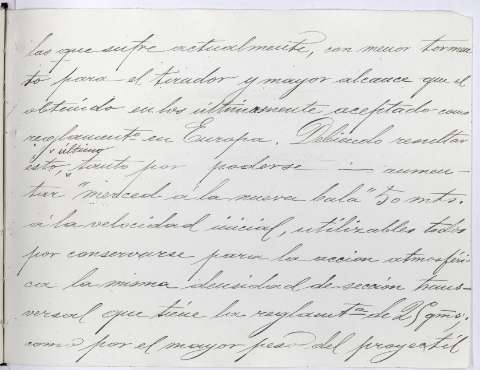 las que sufre actualmente, con menor tormen
to para el tirador y mayor alcance que el
obtenido en los ultimamente aceptado como
reglamentº en Europa. Debiendo resultar
esto último, tanto por poderse — aumen-
tar "merced á la nueva bala" 50 mts.
á la velocidad inicial, utilizables todos
por conservarse para la accion atmosféri-
ca la misma densidad de seccion trans-
versal que tiene la reglamtª de 25 gms;
como por el mayor peso del proyectil